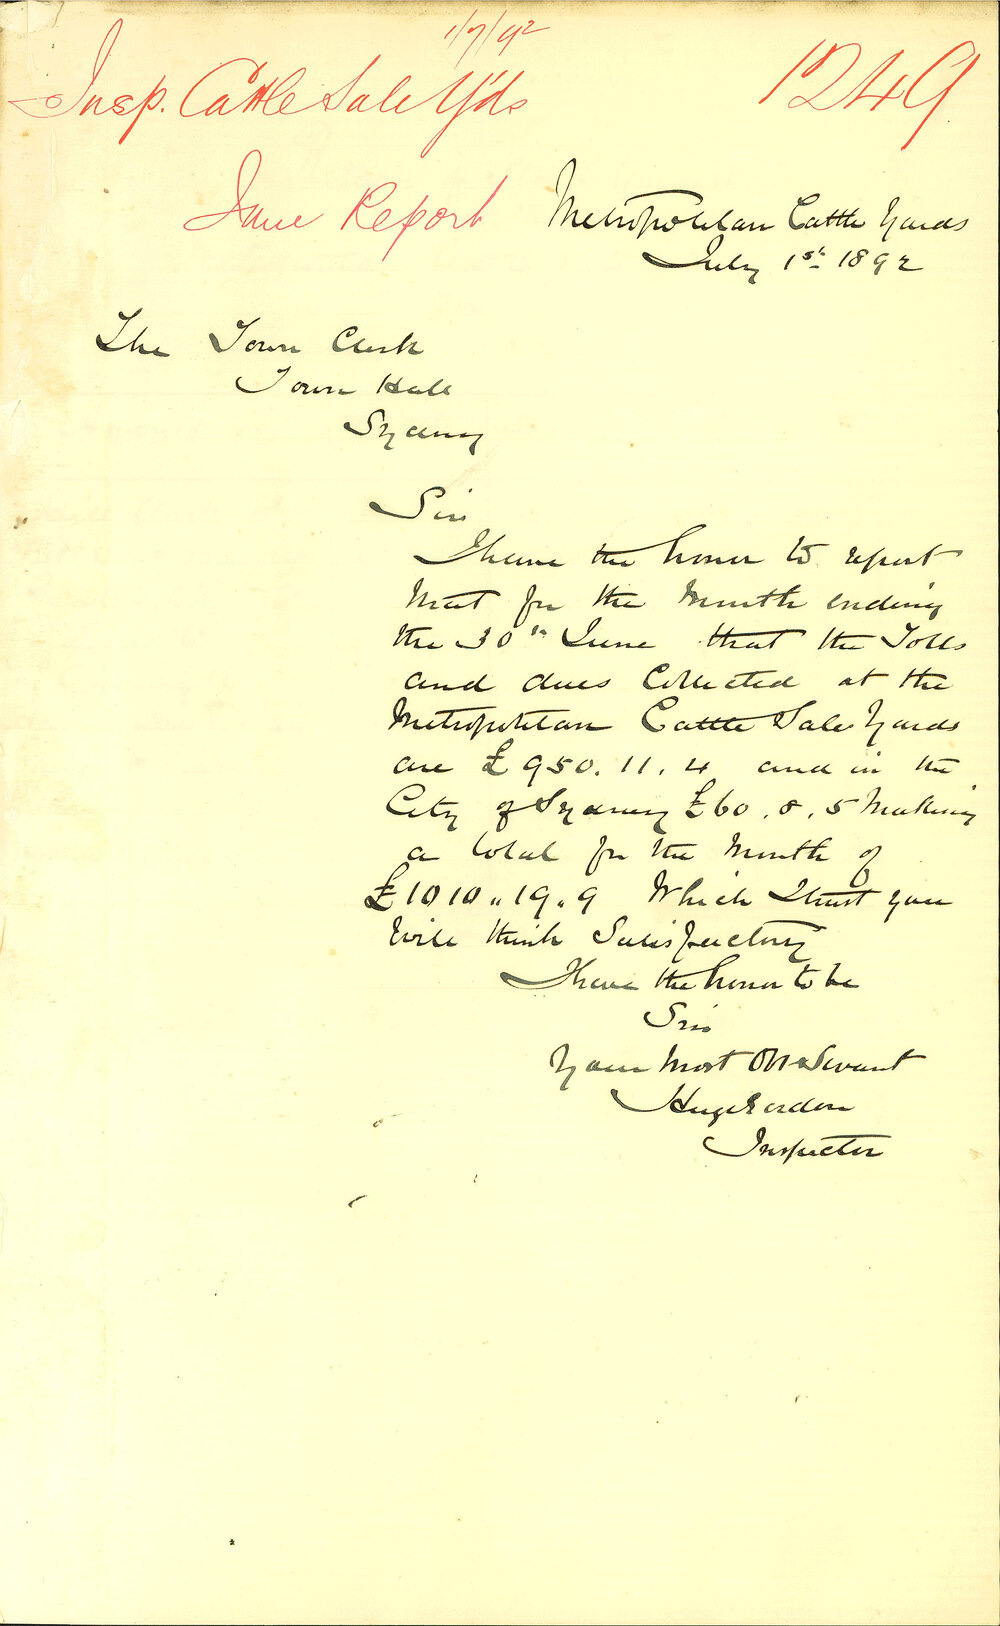 1/7/92
Insp. Cattle Sale Yds
1249
June Report
Metropolitan Cattle Yards
July 1st 1892
The Town Clerk
Town Hall
Sydney
Sir
I have the honor to report
that for the Month ending
the 30th June that the Tolls
and dues Collected at the
Metropolitan Cattle Sale Yards
are £950.11.4 and in the
City of Sydney £60.8.5 Making
a total for the Month of
£1010"19"9 Which I trust you
Will think Satisfactory
I have the honor to be
Sir
Your Most Obt Servant
Hugh Gordon
Inspector